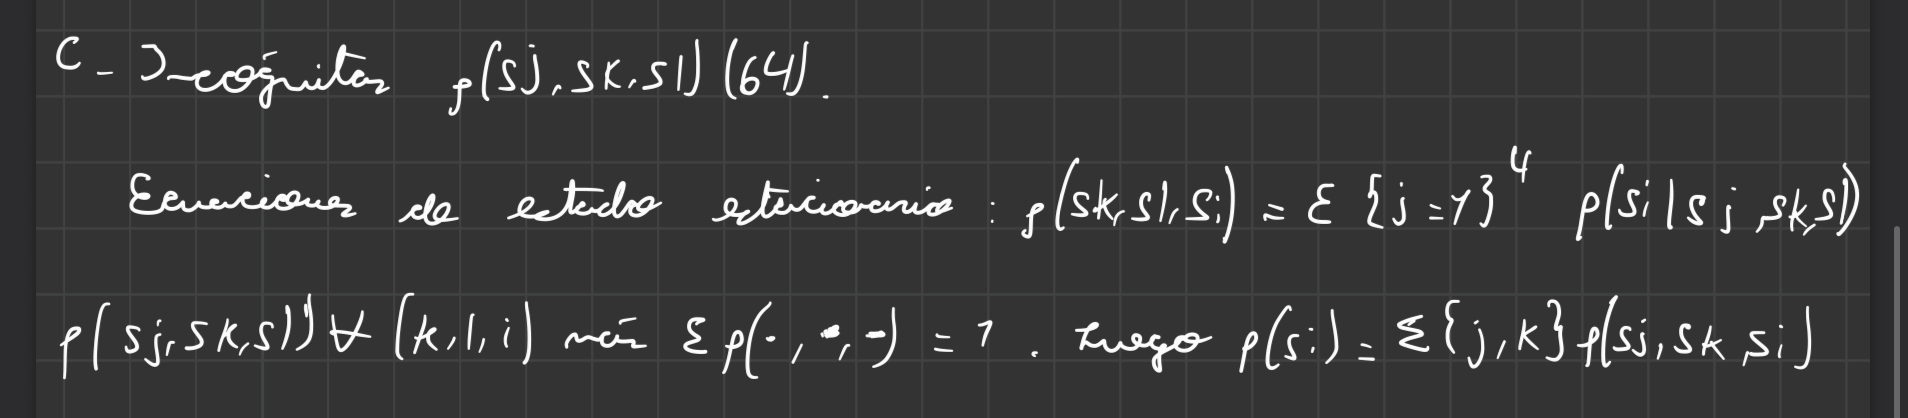 C - Incógnitas p(sj, sk, sl) (64).
Ecuaciones de estado estacionario : p(sk, sl, si) = Σ {j=1}⁴ p(si | sj, sk, sl)
p(sj, sk, sl) ∀ (k, l, i) más Σ p(·, ·, ·) = 1 . Luego p(si) = Σ {j, k} p(sj, sk, si)